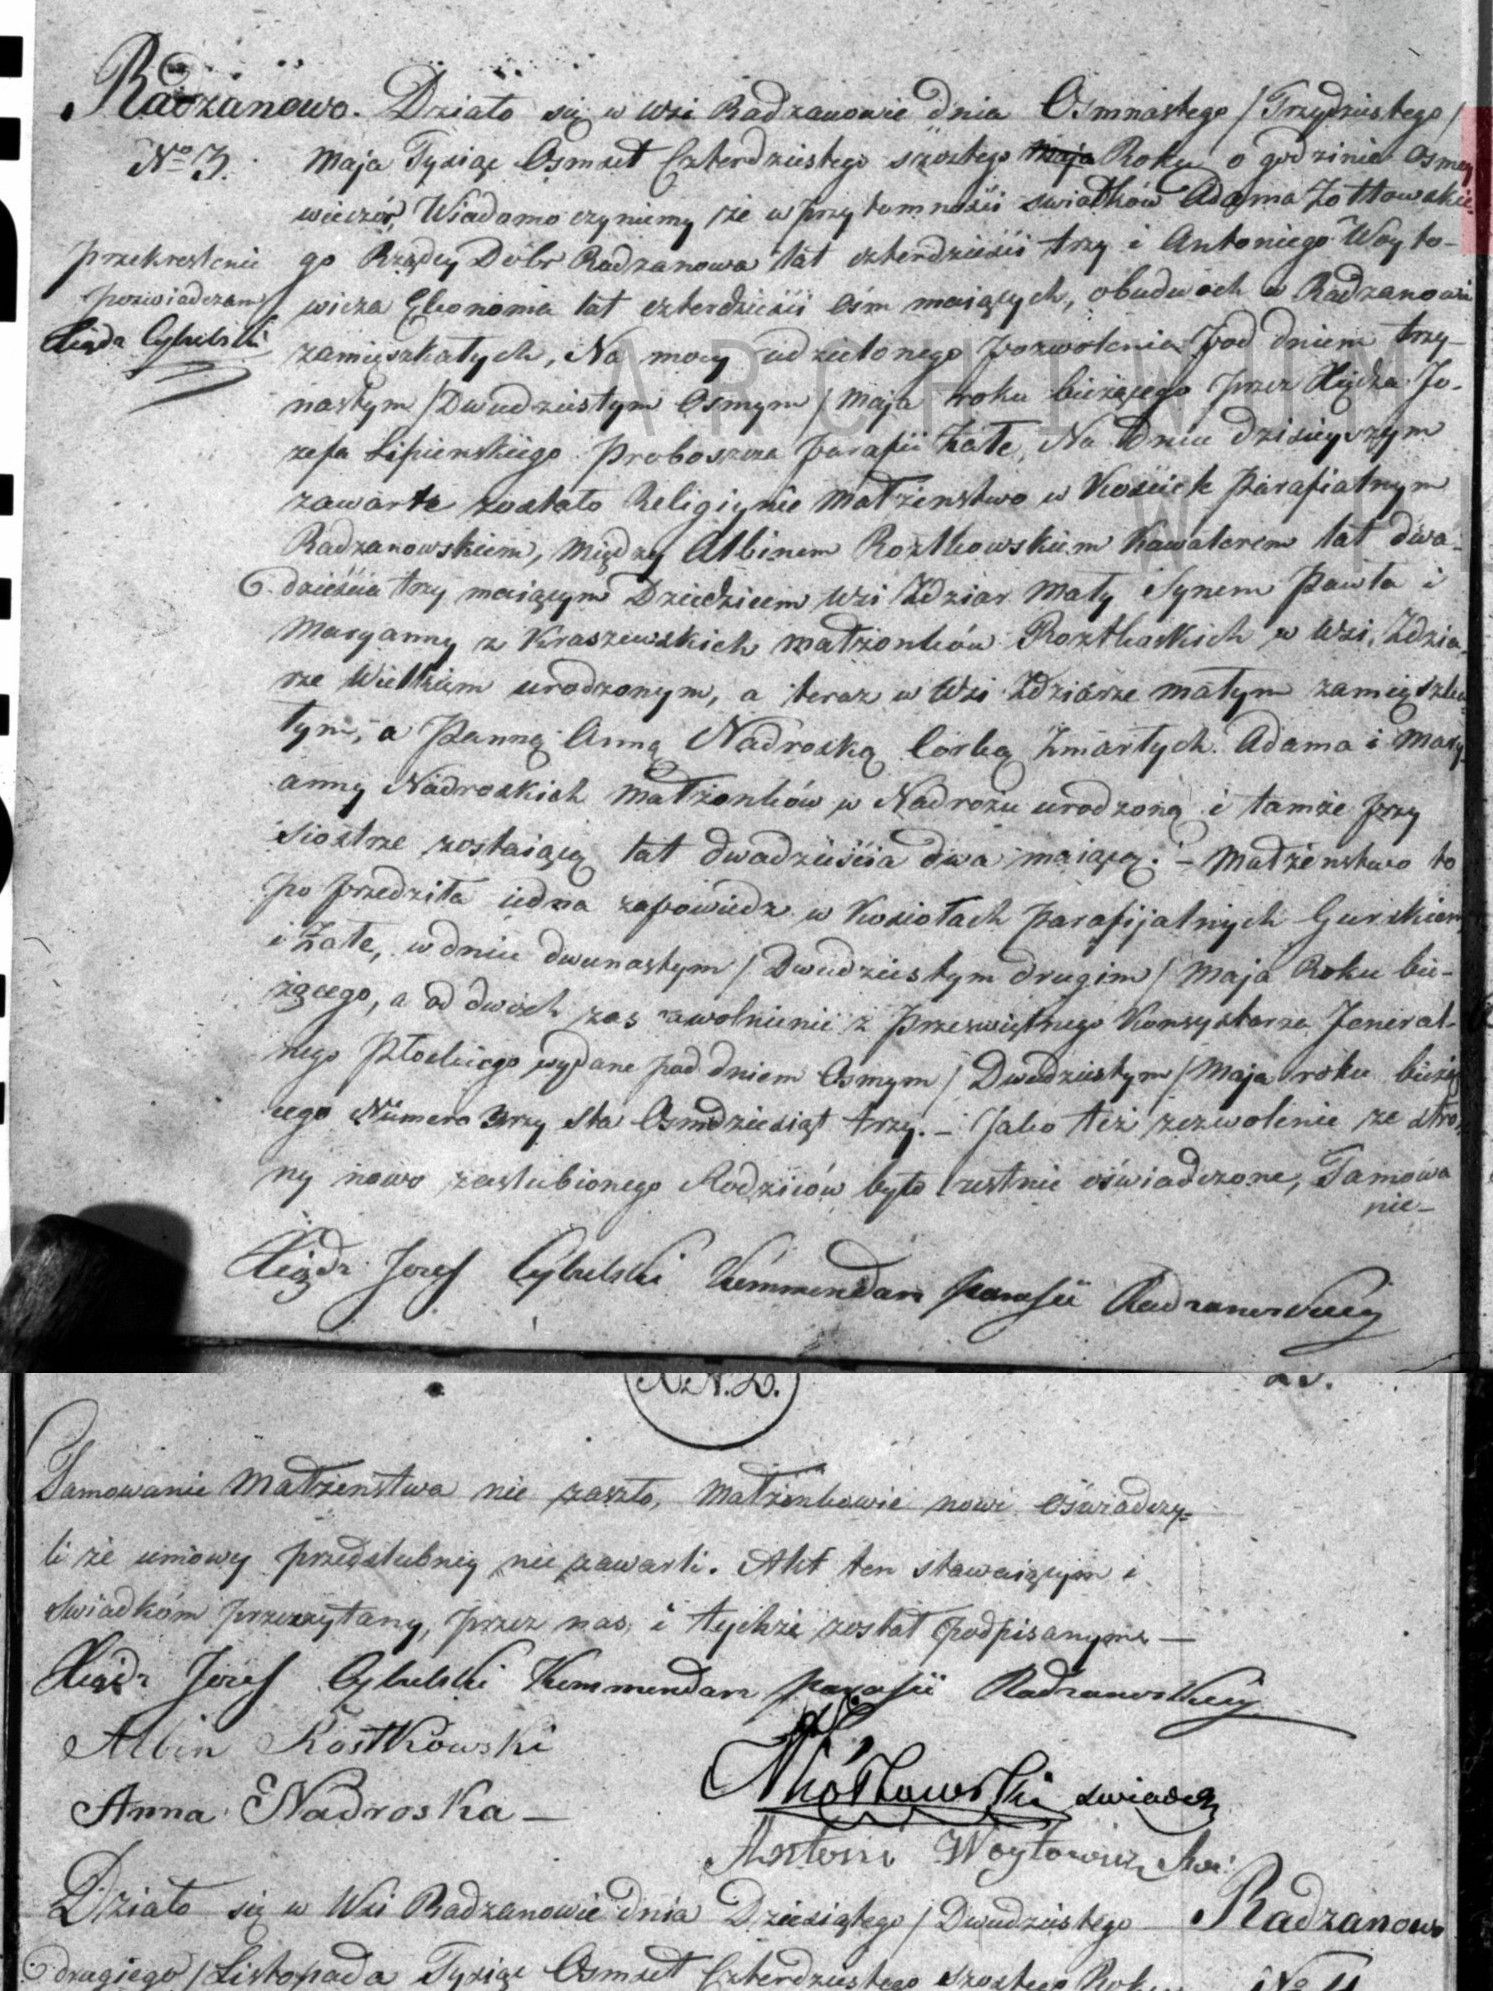 Radzanowo. Działo się w Wsi Radzanowie dnia Osmnastego / Trzydziestego /
No 3. Maja Tysiąc Osmset Czterdziestego szostego Maja Roku o godzinie osmey
wieczór, Wiadomo czyniemy że w przytomności swiadków Adama Żołtowskie-
przekreslenie go Rządcy Dóbr Radzanowa lat czterdzieści trzy i Antoniego Woyto-
poswiadczam wicza Ekonoma lat czterdzieści ośm maiących, obudwóch w Radzanowie
Xiądz Cybulski zamięszkałych, Na mocy udzielonego pozwolenia pod dniem trzy-
nastym / Dwudziestym Osmym / Maja roku bieżącego przez Xiędza Jo-
zefa Lipienskiego Proboszcza parafii Żałe, Na Dniu dzisieyszym
zawarte zostało Religiynie Małżenstwo w Kosciele Parafialnym
Radzanowskiem, między Albinem Roztkowskiem Kawalerem lat dwa-
dzieścia trzy maiącym Dziedzicem Wsi Zdziar Mały Synem Pawła i
Maryanny z Kraszewskich małżonków Roztkoskich w Wsi Zdzia-
rze Wielkiem urodzonym, a teraz w Wsi Zdziarze małym zamięszka-
łym, a Panną Anną Nadroską Corką Zmarłych Adama i Mary-
anny Nadroskich Małżonków w Nadrożu urodzoną i tamże przy
Siostrze zostaiącą lat dwadzieścia dwa maiącą. – Małżenstwo to
poprzedziła iedna zapowiedz w Kosciołach parafijalnych Gurskiem
i Żałe, w dniu dwunastym / Dwudziestym drugim / Maja Roku bie-
żącego, a od dwóch zas uwolnienie z Przeświętnego Konsystorza Jeneral-
nego Płockiego wydane pod dniem Osmym / Dwudziestym / Maja roku bieżą-
cego Numero Trzy sta Osmdziesiąt trzy. – Jako też zezwolenie ze stro-
ny nowo zaslubionego Rodziców było ustnie oświadczone, Tamowa
nie–
Xiądz Jozef Cybulski Kommendarz parafii Radzanowskiey
Tamowanie Małżenstwa nie zaszło, Małżonkowie nowi oświadczy-
li że umowy przedslubney nie zawarli. Akt ten stawaiącym i
Swiadkóm przeczytany, przez nas i tychże został podpisanym. —
Xiądz Józef Cybulski Kommendarz parafii Radzanowskiey
Albin Rostkowski
Żółtowski swiadek
Anna Nadroska –
Antoni Woytowicz Swi:
Działo się w Wsi Radzanowie dnia Dziesiątego / Dwudziestego Radzanowo
drugiego / Listopada Tysiąc Osmset Czterdziestego szostego Roku No 4